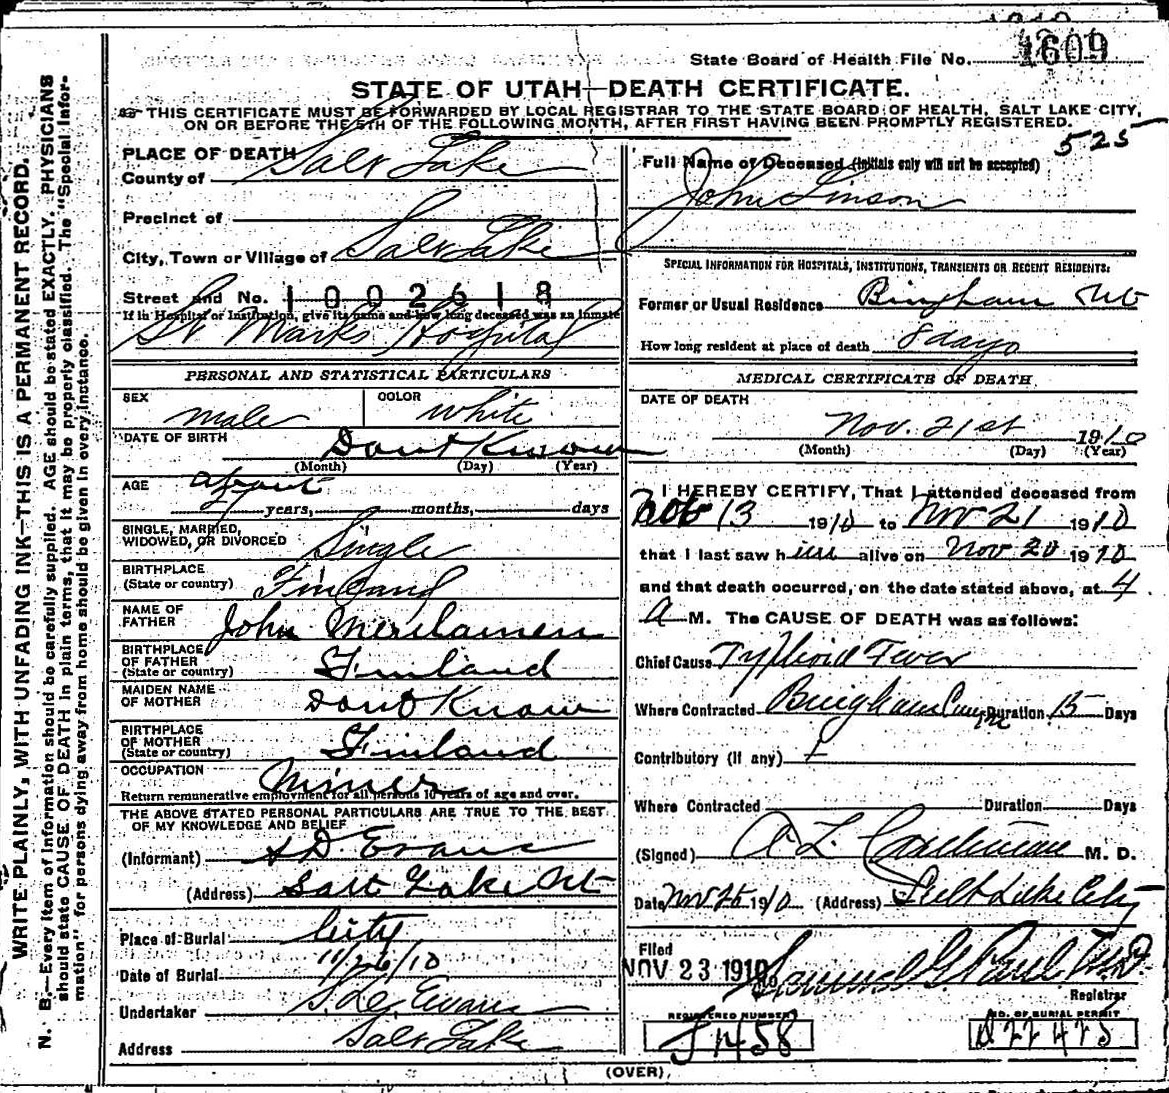 State Board of Health File No. 1609
STATE OF UTAH—DEATH CERTIFICATE.
THIS CERTIFICATE MUST BE FORWARDED BY LOCAL REGISTRAR TO THE STATE BOARD OF HEALTH, SALT LAKE CITY,
ON OR BEFORE THE 5TH OF THE FOLLOWING MONTH, AFTER FIRST HAVING BEEN PROMPTLY REGISTERED.
525
WRITE PLAINLY, WITH UNFADING INK—THIS IS A PERMANENT RECORD.
N. B.—Every item of Information should be carefully supplied. AGE should be stated EXACTLY. PHYSICIANS
should state CAUSE OF DEATH in plain terms, that it may be properly classified. The "Special Infor-
mation" for persons dying away from home should be given in every instance.
PLACE OF DEATH
County of Salt Lake
Precinct of
City, Town or Village of Salt Lake
Street and No. 1002618
If in Hospital or Institution, give its name and how long deceased was an inmate
St Marks Hospital
PERSONAL AND STATISTICAL PARTICULARS
SEX male COLOR white
DATE OF BIRTH Dont Know
(Month) (Day) (Year)
AGE
years, months, days
SINGLE, MARRIED,
WIDOWED, OR DIVORCED Single
BIRTHPLACE
(State or country) Finland
NAME OF
FATHER John
BIRTHPLACE
OF FATHER
(State or country) Finland
MAIDEN NAME
OF MOTHER Dont Know
BIRTHPLACE
OF MOTHER
(State or country) Finland
OCCUPATION Miner
Return remunerative employment for all persons 10 years of age and over.
THE ABOVE STATED PERSONAL PARTICULARS ARE TRUE TO THE BEST
OF MY KNOWLEDGE AND BELIEF
(Informant) S D Evans
(Address) Salt Lake Ut
Place of Burial City
Date of Burial 11/26/10
Undertaker S. D. Evans
Address Salt Lake
Full Name of Deceased (Initials only will not be accepted)
John Linson
SPECIAL INFORMATION FOR HOSPITALS, INSTITUTIONS, TRANSIENTS OR RECENT RESIDENTS:
Former or Usual Residence Bingham Ut
How long resident at place of death 8 days
MEDICAL CERTIFICATE OF DEATH
DATE OF DEATH
Nov. 21st 1910
(Month) (Day) (Year)
I HEREBY CERTIFY, That I attended deceased from
13 1910 to Nov 21 1910
that I last saw him alive on Nov 20 1910
and that death occurred, on the date stated above, at 4
a M. The CAUSE OF DEATH was as follows:
Chief Cause Typhoid Fever
Where Contracted Bingham Canyon Duration 15 Days
Contributory (if any)
Where Contracted Duration Days
(Signed) M. D.
Date Nov 1910 (Address) Salt Lake City
Filed
NOV 23 1910 Samuel G. Paul M.D.
Registrar
REGISTERED NUMBER NO. OF BURIAL PERMIT
J1458 D22425
(OVER)